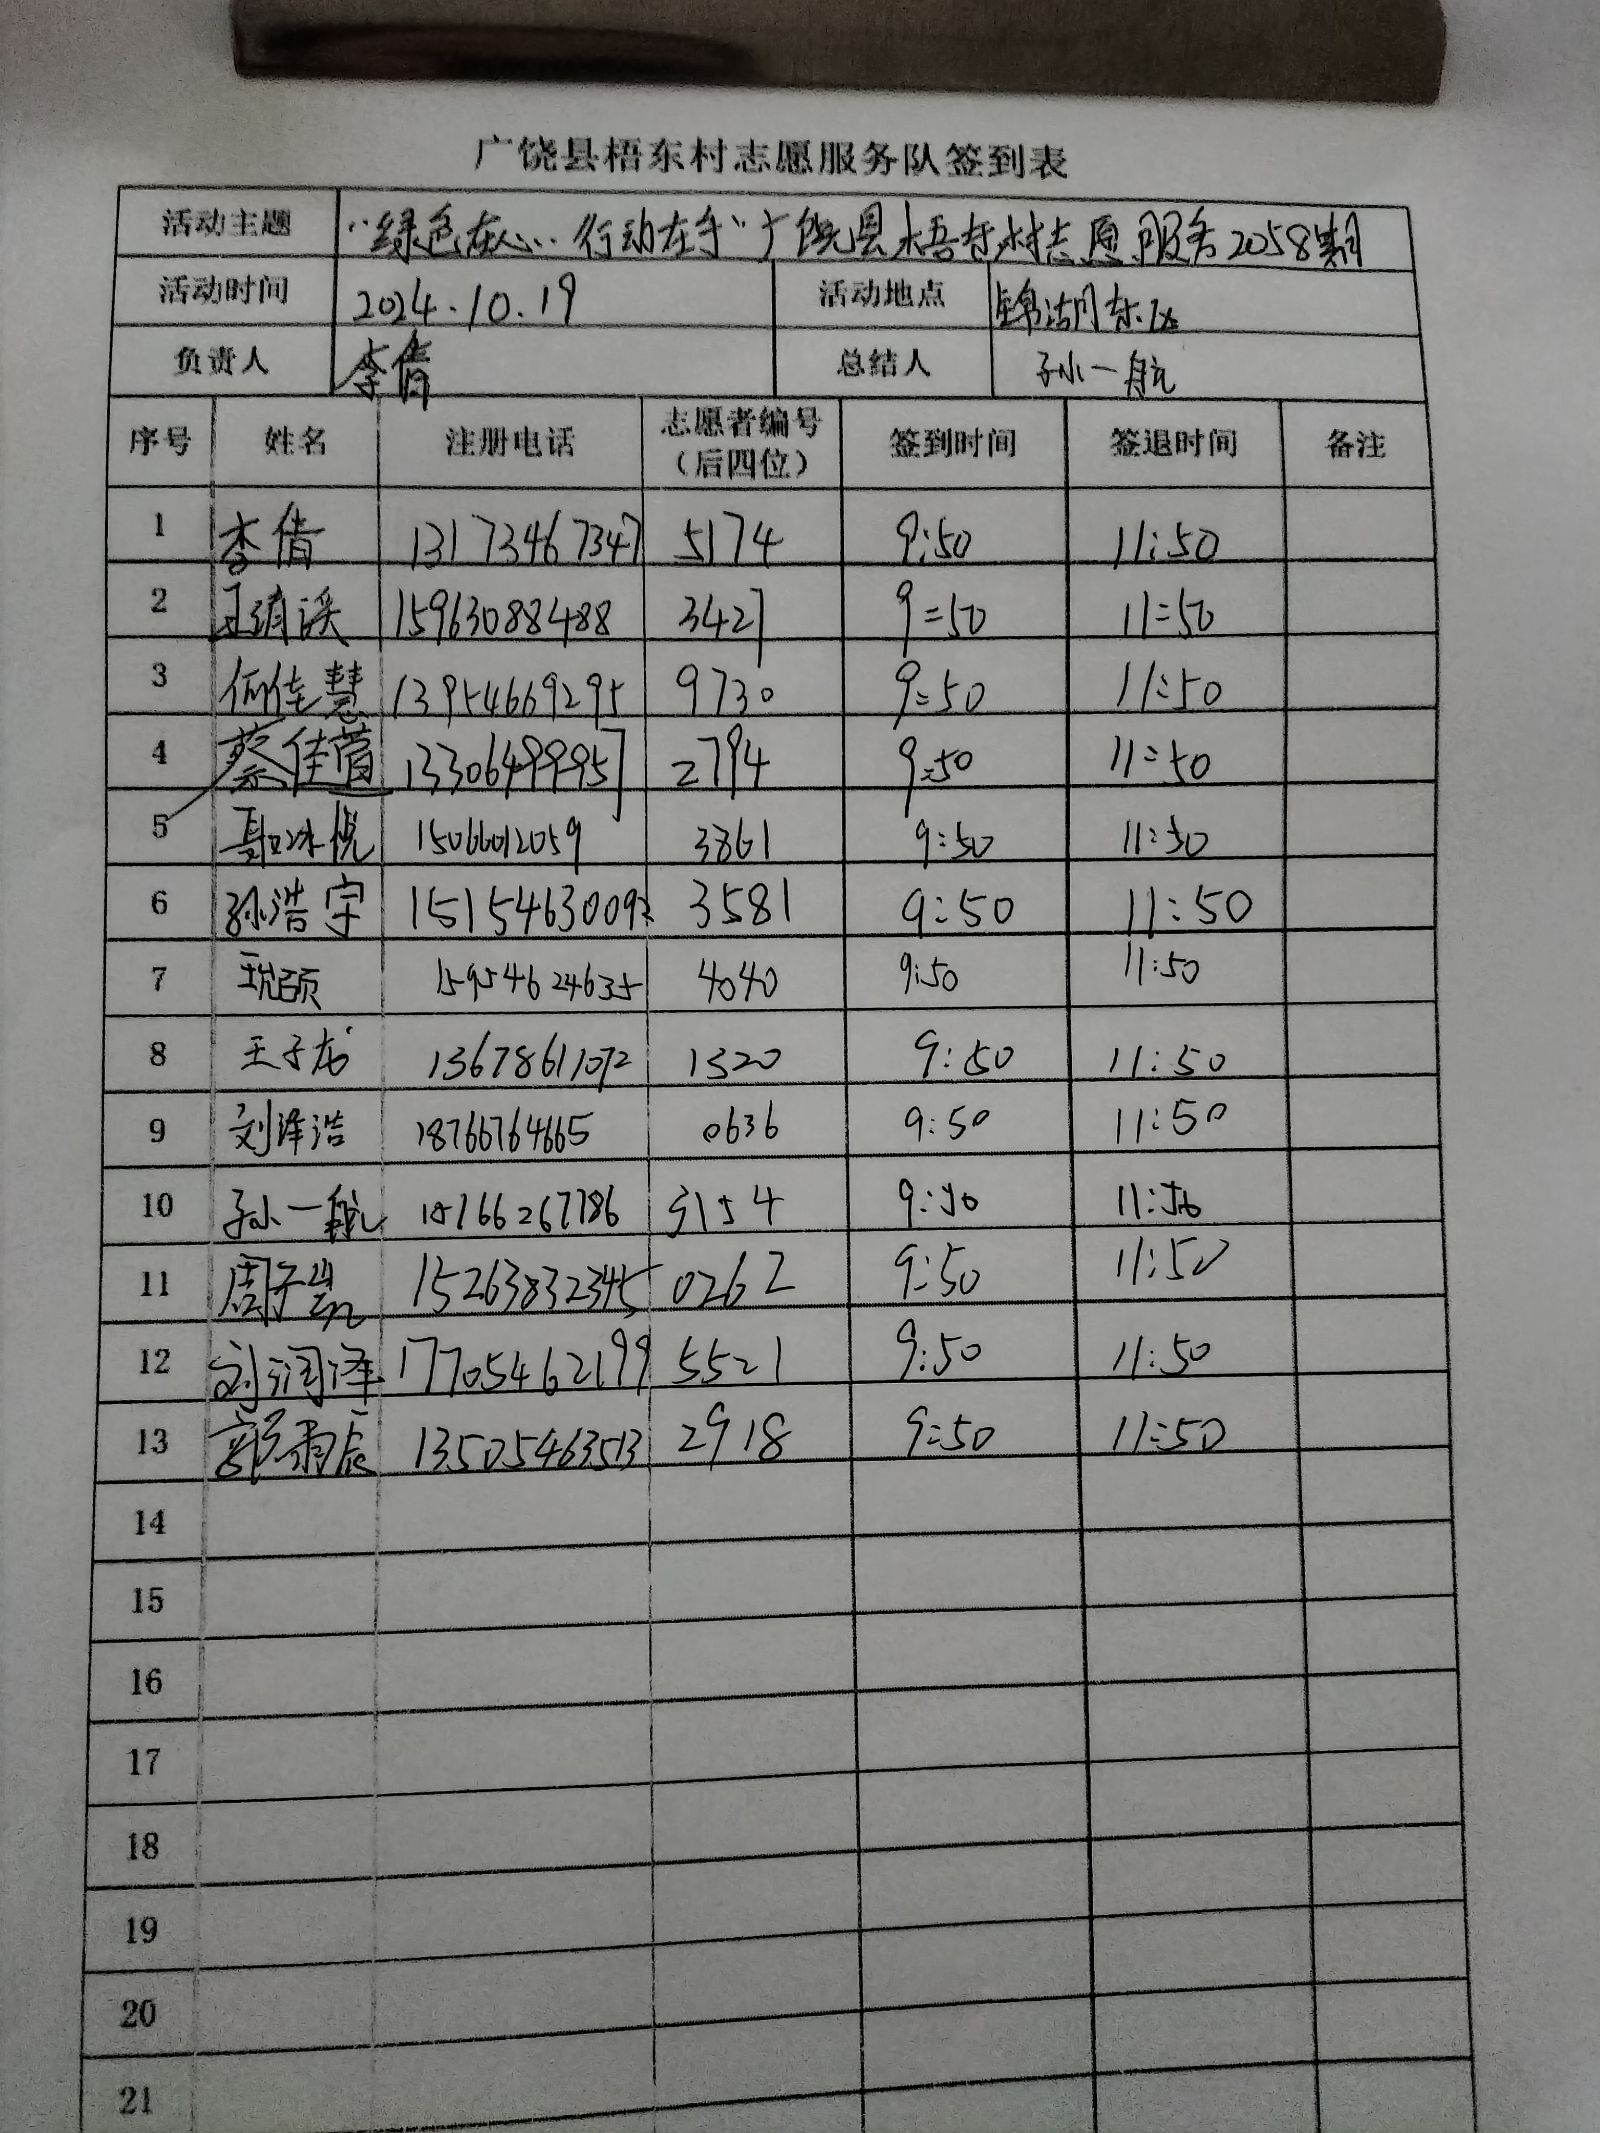 广饶县梧东村志愿服务队签到表
活动主题 “绿色在心..行动在手”广饶县梧村村志愿服务2058期
活动时间 2024.10.19 活动地点 锦湖东区
负责人 李倩 总结人 孙一航
序号 姓名 注册电话 志愿者编号（后四位） 签到时间 签退时间 备注
1 李倩 13173467347 5174 9:50 11:50
2 15963088488 3427 9:50 11:50
3 何佳慧 13954669295 9730 9:50 11:50
4 蔡佳萱 13306499957 2794 9:50 11:50
5 15066012059 3861 9:50 11:50
6 孙浩宇 15154630092 3581 9:50 11:50
7 15954624635 4040 9:50 11:50
8 王子龙 13678611072 1320 9:50 11:50
9 刘泽浩 18766764665 0636 9:50 11:50
10 孙一航 18766267786 5154 9:50 11:50
11 周子凯 15263832345 0262 9:50 11:50
12 刘润泽 17705462199 5521 9:50 11:50
13 郭雨辰 13505463513 2918 9:50 11:50
14
15
16
17
18
19
20
21